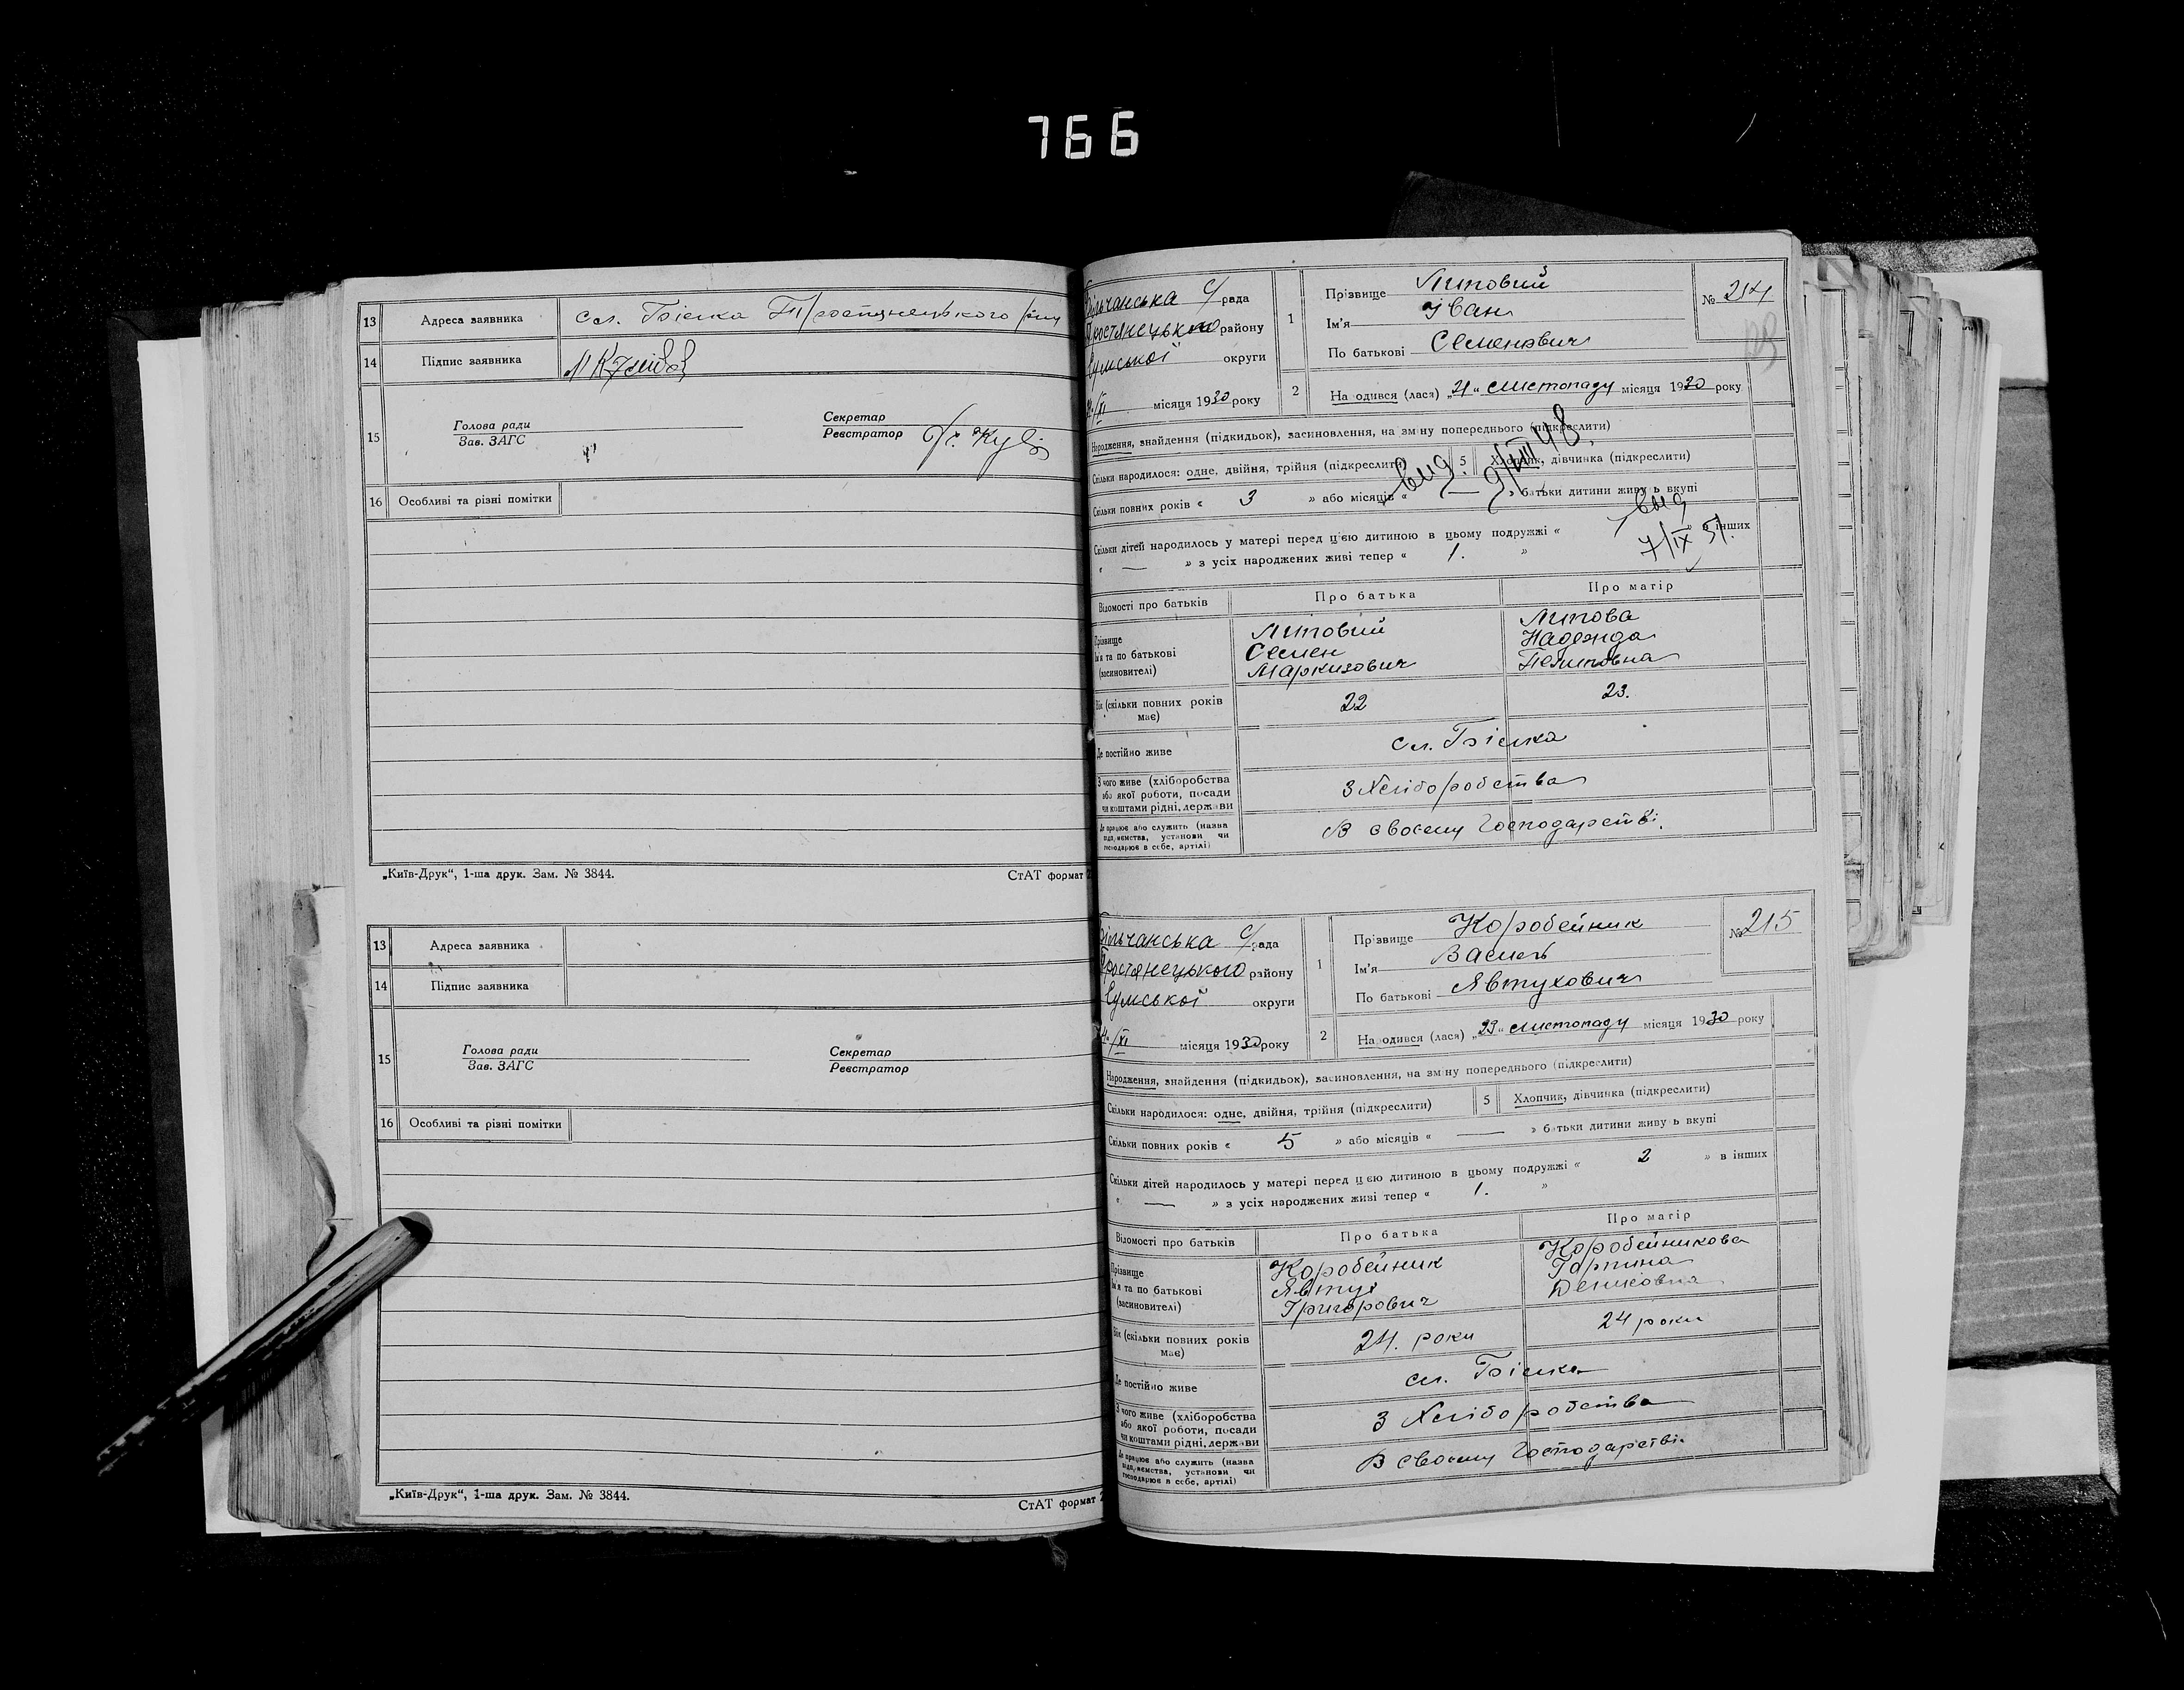 766
13 Адреса заявника сл. Білка Тростянецького р-ну
14 Підпис заявника
15 Голова ради
Зав. ЗАГС
Секретар
Реєстратор
16 Особливі та різні помітки
„Київ-Друк“, 1-ша друк. Зам. № 3844. СтАТ формат
13 Адреса заявника
14 Підпис заявника
15 Голова ради
Зав. ЗАГС
Секретар
Реєстратор
16 Особливі та різні помітки
„Київ-Друк“, 1-ша друк. Зам. № 3844. СтАТ формат
Більчанська С/рада
Тростянецького району
Сумської округи
/XI місяця 1930 року
1 Прізвище Литовий
Ім'я Іван
По батькові Семенович
№ 214
2 Народився (лася) „21“ листопаду місяця 1930 року
Народження, знайдення (підкидьок), засиновлення, на зміну попереднього (підкреслити)
Скільки народилося: одне, двійня, трійня (підкреслити) 5 Хлопчик, дівчинка (підкреслити)
Скільки повних років « 3 » або місяців « — » батьки дитини живуть вкупі
вид. 9/VIII 48.
Скільки дітей народилось у матері перед цією дитиною в цьому подружжі « 1 » в інших
выд
7/IX 51.
« — » з усіх народжених живі тепер « 1. »
Відомості про батьків Про батька Про матір
Прізвище Литовий Литова
Ім'я та по батькові Семен Надежда
(засиновителі)
Вік (скільки повних років має) 22 23.
Де постійно живе сл. Білка
З чого живе (хліборобства
або якої роботи, посади
чи коштами рідні, держави З Хліборобства
Де працює або служить (назва
підприємства, установи чи
господарює в себе, артілі) В своєму Господарстві.
Більчанська С/рада
Тростянецького району
Сумської округи
24/XI місяця 1930 року
1 Прізвище Коробейник
Ім'я Василь
По батькові Явтухович
№ 215
2 Народився (лася) „23“ листопаду місяця 1930 року
Народження, знайдення (підкидьок), засиновлення, на зміну попереднього (підкреслити)
Скільки народилося: одне, двійня, трійня (підкреслити) 5 Хлопчик, дівчинка (підкреслити)
Скільки повних років « 5 » або місяців « — » батьки дитини живуть вкупі
Скільки дітей народилось у матері перед цією дитиною в цьому подружжі « 2 » в інших
« — » з усіх народжених живі тепер « 1. »
Відомості про батьків Про батька Про матір
Прізвище Коробейник Коробейникова
Ім'я та по батькові Явтух Горпина
(засиновителі) Григорович Денисовна
Вік (скільки повних років має) 24. роки 24 роки
Де постійно живе сл. Білка
З чого живе (хліборобства
або якої роботи, посади
чи коштами рідні, держави З Хліборобства
Де працює або служить (назва
підприємства, установи чи
господарює в себе, артілі) В своєму Господарстві.